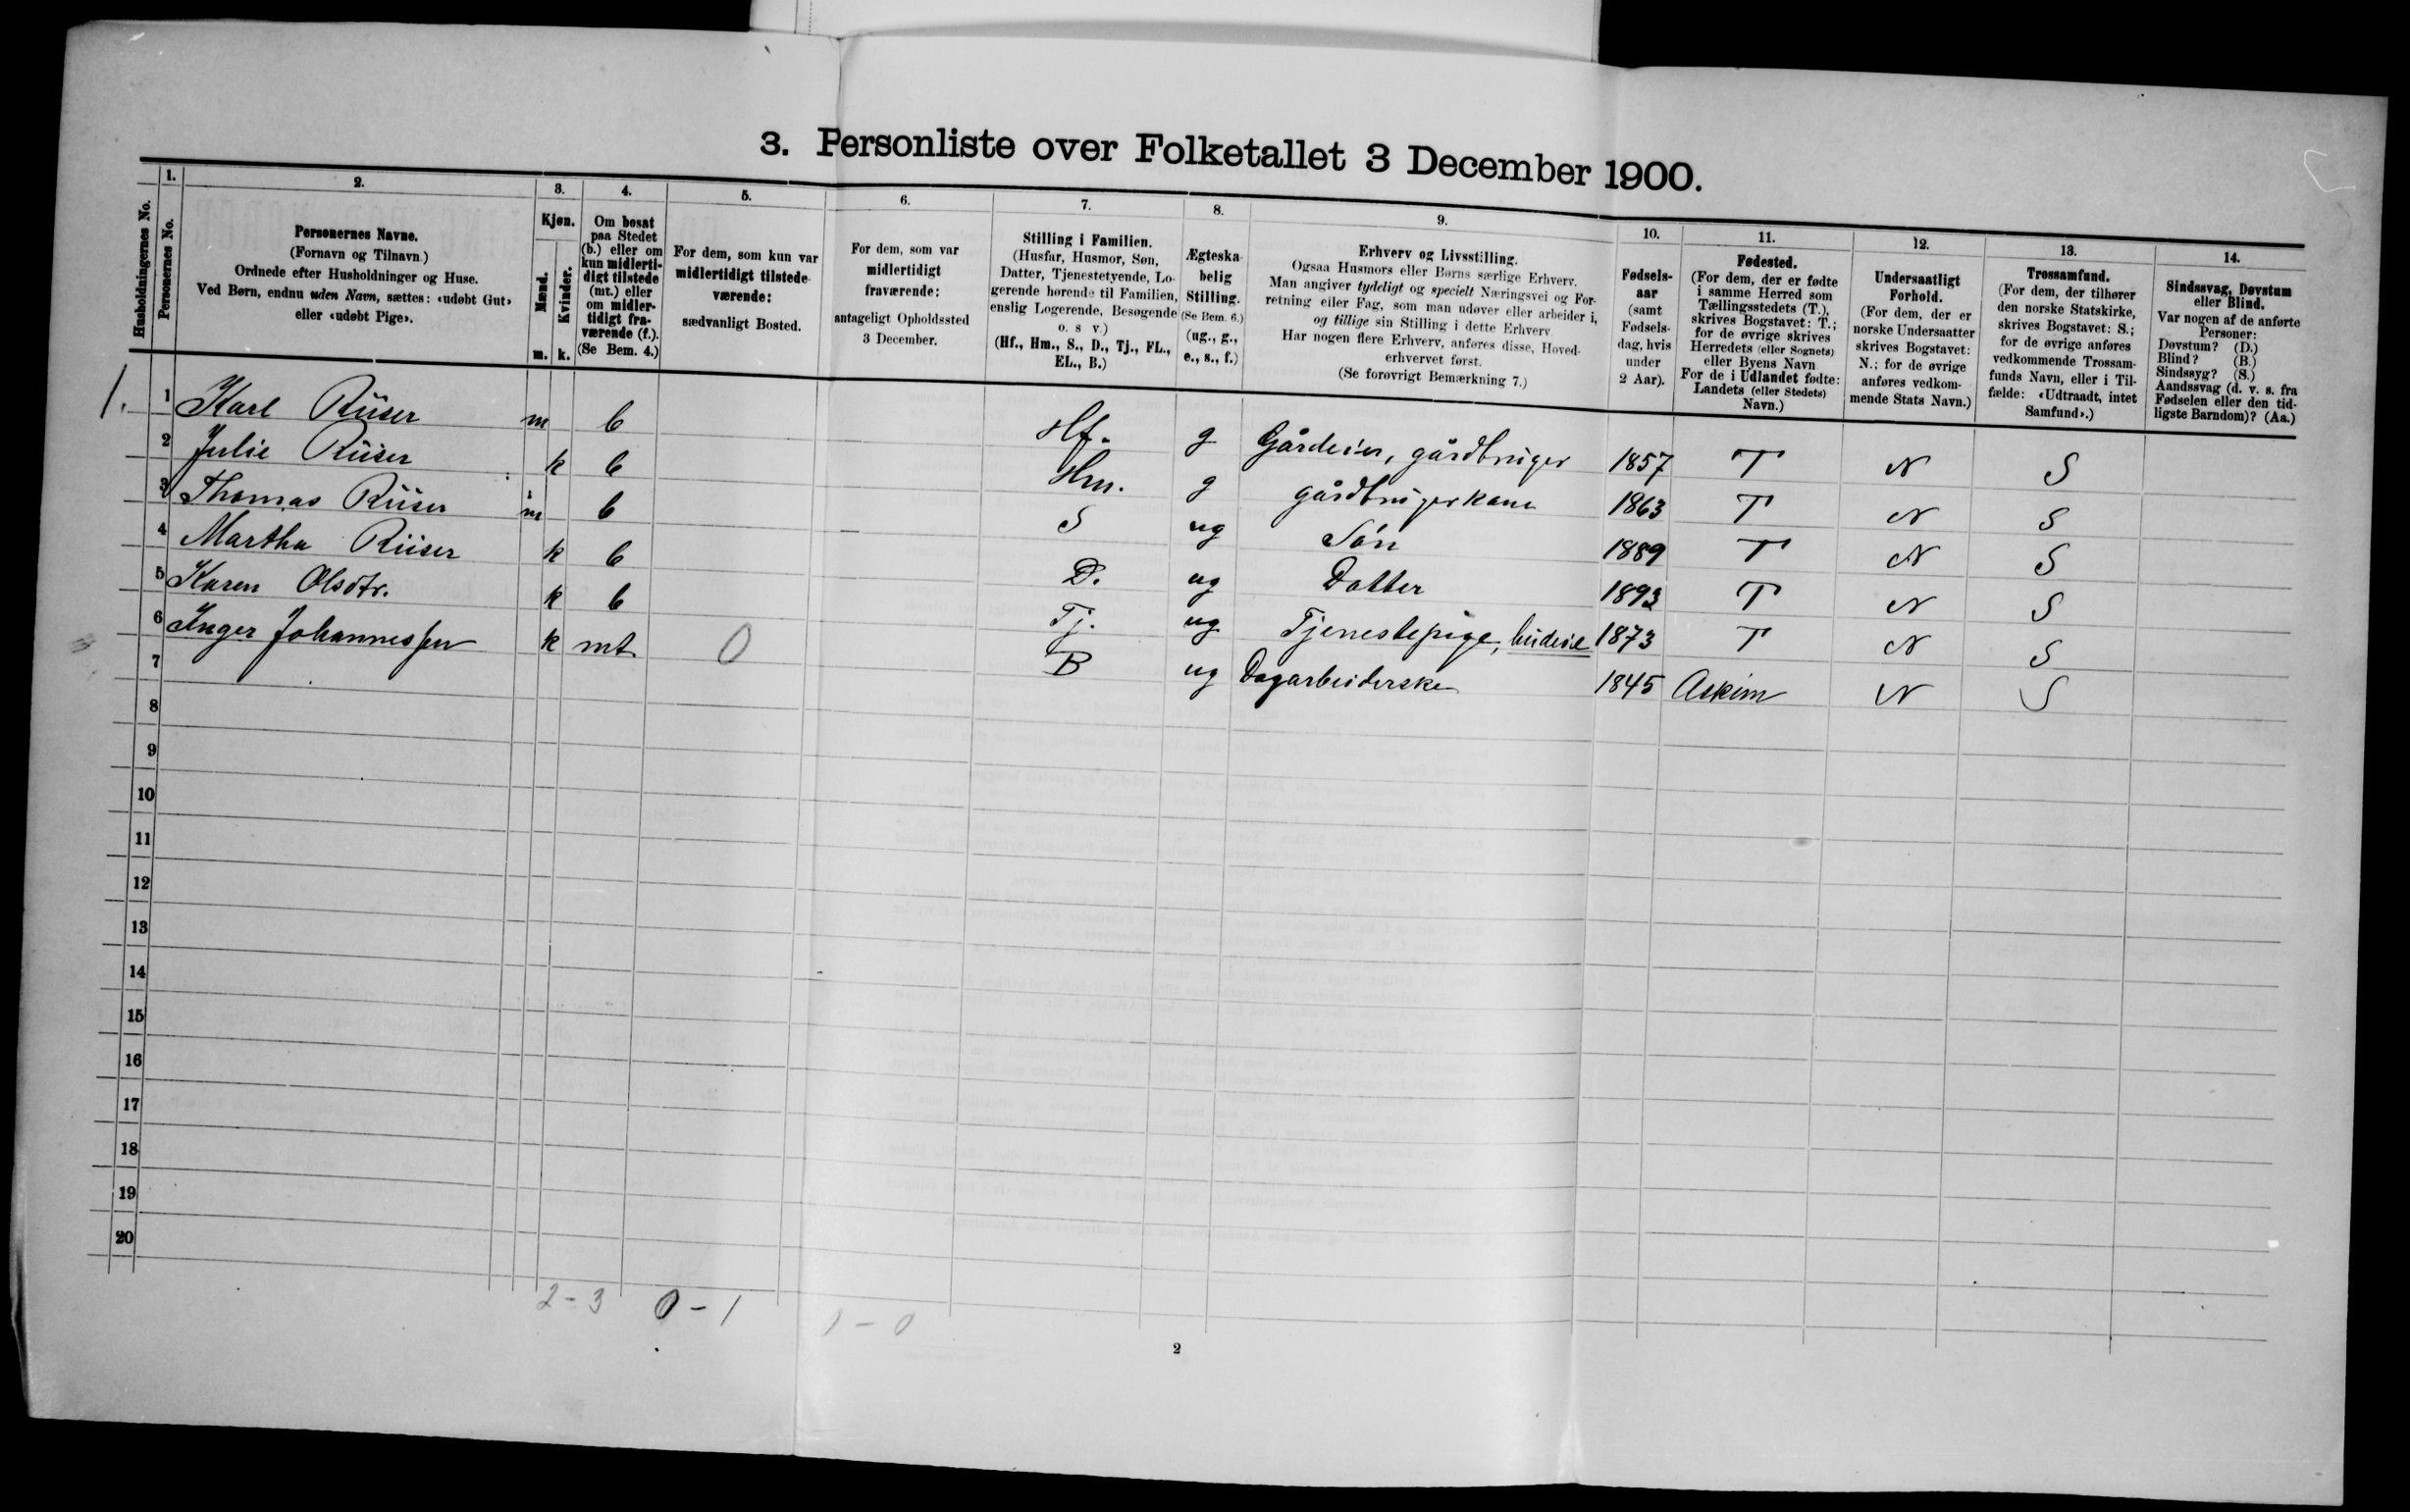 3. Personliste over Folketallet 3 December 1900.
1. 2. 3. 4. 5. 6. 7. 8. 9. 10. 11. 12. 13. 14.
Husholdningernes No.
Personernes No.
Personernes Navne.
(Fornavn og Tilnavn.)
Ordnede efter Husholdninger og Huse.
Ved Børn, endnu uden Navn, sættes: «udøbt Gut»
eller «udøbt Pige».
Kjøn.
Mænd.
Kvinder.
m. k.
Om bosat
paa Stedet
(b.) eller om
kun midlerti-
digt tilstede
(mt.) eller
om midler-
tidigt fra-
værende (f.).
(Se Bem. 4.)
For dem, som kun var
midlertidigt tilstede-
værende:
sædvanligt Bosted.
For dem, som var
midlertidigt
fraværende:
antageligt Opholdssted
3 December.
Stilling i Familien.
(Husfar, Husmor, Søn,
Datter, Tjenestetyende, Lo-
gerende hørende til Familien,
enslig Logerende, Besøgende
o. s v.)
(Hf., Hm., S., D., Tj., FL.,
EL., B.)
Ægteska-
belig
Stilling.
(Se Bem. 6.)
(ug., g.,
e., s., f.)
Erhverv og Livsstilling.
Ogsaa Husmors eller Børns særlige Erhverv.
Man angiver tydeligt og specielt Næringsvei og For-
retning eller Fag, som man udøver eller arbeider i,
og tillige sin Stilling i dette Erhverv
Har nogen flere Erhverv, anføres disse, Hoved-
erhvervet først.
(Se forøvrigt Bemærkning 7.)
Fødsels-
aar
(samt
Fødsels-
dag, hvis
under
2 Aar).
Fødested.
(For dem, der er fødte
i samme Herred som
Tællingsstedets (T.),
skrives Bogstavet: T.;
for de øvrige skrives
Herredets (eller Sognets)
eller Byens Navn
For de i Udlandet fødte:
Landets (eller Stedets)
Navn.)
Undersaatligt
Forhold.
(For dem, der er
norske Undersaatter
skrives Bogstavet:
N.; for de øvrige
anføres vedkom-
mende Stats Navn.)
Trossamfund.
(For dem, der tilhører
den norske Statskirke,
skrives Bogstavet: S.;
for de øvrige anføres
vedkommende Trossam-
funds Navn, eller i Til-
fælde: «Udtraadt, intet
Samfund».)
Sindssvag, Døvstum
eller Blind.
Var nogen af de anførte
Personer:
Døvstum? (D.)
Blind? (B.)
Sindssyg? (S.)
Aandssvag (d. v. s. fra
Fødselen eller den tid-
ligste Barndom)? (Aa.)
1. 1 Karl Riiser m b Hf. g Gårdeier, gårdbruger 1857 T N S
2 Julie Riiser k b Hm. g gårdbrugerkone 1863 T N S
3 Thomas Riiser m b S ug Søn 1889 T N S
4 Martha Riiser k b D. ug Datter 1893 T N S
5 Karen Olsdtr. k b Tj. ug Tjenestepige, budeie 1873 T N S
6 Inger Johannessen k mt 0 B ug Dagarbeiderske 1845 Askim N S
7
8
9
10
11
12
13
14
15
16
17
18
19
20
2-3 0-1 1-0
2